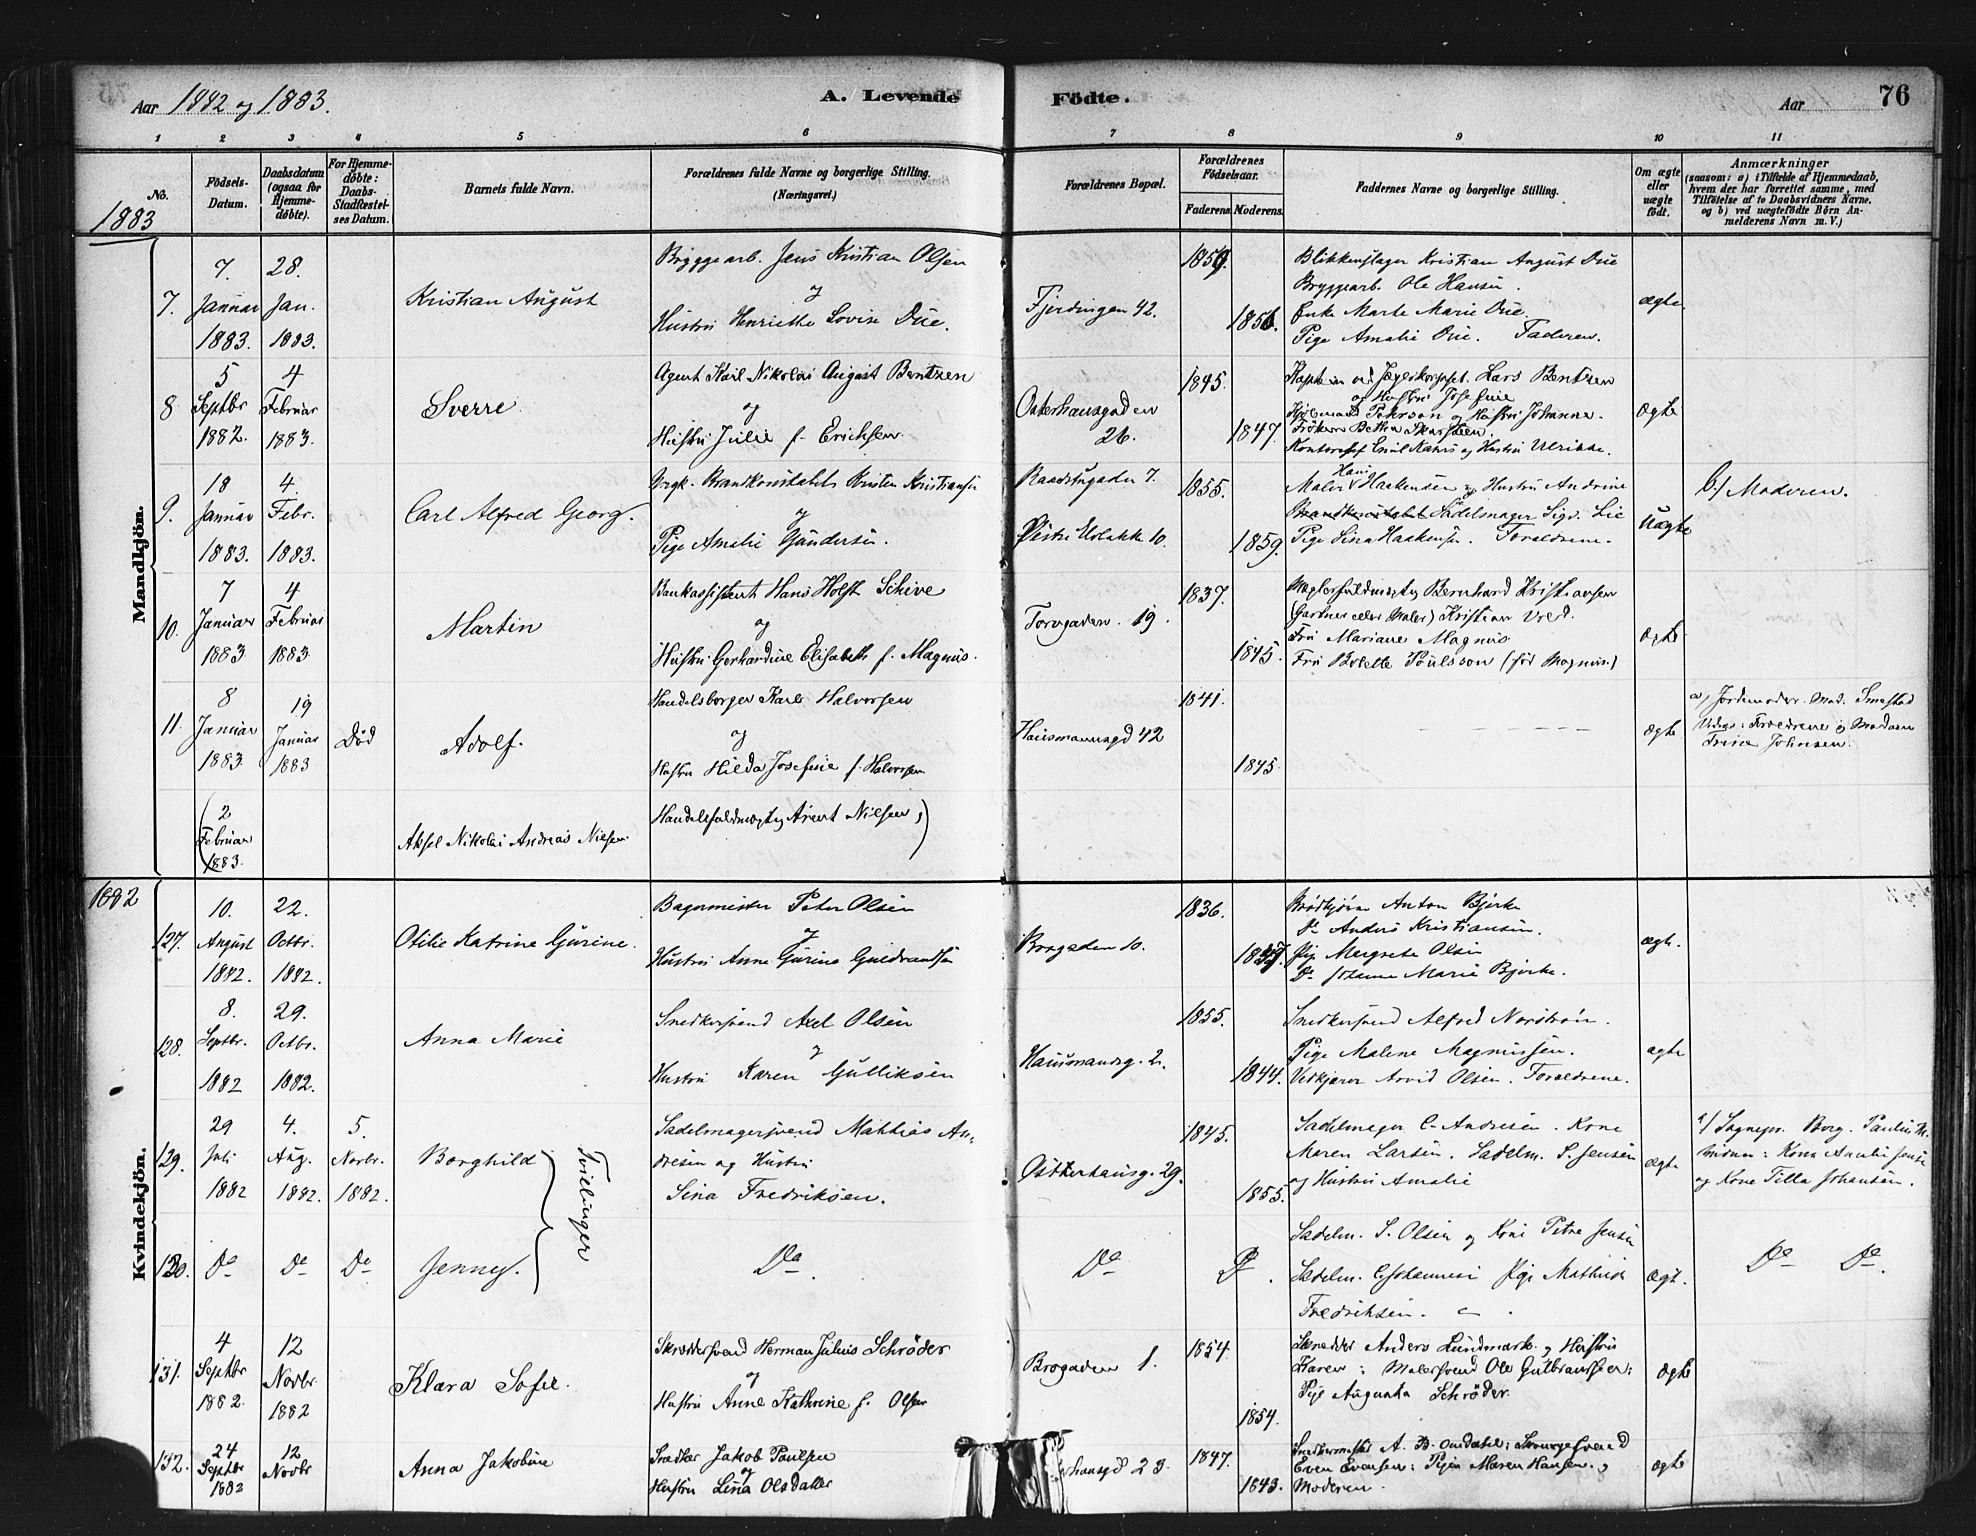 Aar 1882 og 1883.
A. Levende Födte.
Aar 76
1 2 3 4 5 6 7 8 9 10 11
No.
Födsels-Datum.
Daabsdatum (ogsaa for Hjemme-døbte).
For Hjemme-döbte: Daabs-Stadfæstel-ses Datum.
Barnets fulde Navn.
Forældrenes fulde Navne og borgerlige Stilling.
(Næringsvei.)
Forældrenes Bopæl.
Forældrenes Födselsaar.
Faderens. Moderens.
Faddernes Navne og borgerlige Stilling.
Om ægte eller uægte födt.
Anmærkninger
(saasom: a) i Tilfælde af Hjemmedaab,
hvem der har forrettet samme, med
Tilföielse af to Daabsvidners Navne,
og b) ved uægtefödte Börn An-
melderens Navn m. V.)
1883
Mandkjön.
7. 7. Januar 1883. 28. Jan. 1883.
Kristian August
Bryggearb. Jens Kristian Olsen
og
Hustru Henriette Lovise Due.
Fjerdingen 42.
1859. 1856.
Blikkenslager Kristian August Due
Bryggearb Ole Hansen.
Enke Marte Marie Due.
Pige Amalie Due. Faderen.
ægte
8 5 Septbr 1882. 4 Februar 1883.
Sverre.
Agent Karl Nikolai August Bentzen
og
Hustru Julie f. Erichsen.
Osterhausgaden
26.
1845. 1847.
Kaptein ved Jægerkorpset Lars Bentzen
og Hustru Josefine
Peterson og Hustru Johanna.
Frøken Betha Skarsteen.
Kontorchef Emil Kahrs og Hustru Ulrikke.
Ægte
9. 18 Januar 1883. 4. Febr. 1883.
Carl Alfred Georg.
Brandkonstabel Kristen Kristiansen
og
Pige Amalie Gundersen.
Raadstugaden 7.
10.
1855. 1859.
Maler Hans Haakensen og Hustru Andrine
Brandkonstabel Sadelmager Sigv. Lie
Pige Lina Haakensen. Forældrene.
Uægte
b.) Moderen.
10. 7 Januar 1883 4 Februar 1883.
Martin
Bankassistent Hans Holst Schive
og
Hustru Gerhardine Elisabeth f. Magnus.
Torvgaden. 19.
1837. 1845.
Bernhard Kristiansen
(Gartner eller Maler) Kristian Vred.
Fru Mariane Magnus.
Fru Bolette Poulsson (född Magnus)
ægte
11. 8 Januar 1883. 19 Januar 1883 Död
Adolf.
Handelsborger Karl Halvorsen
og
Hustru Hilda Josefine f. Halvorsen
Hausmannsgd 42
1841. 1845.
ægte
a) Jordemoder Mad. Smestad
Vidner: Forældrene og Madam
Trine Johnsen.
(2 Februar 1883.
Aksel Nikolai Andreas Nielsen
Handelsfuldmægtig Arent Nielsen,)
1882
Kvindekjön.
127. 10. August 1882. 22. Octbr. 1882.
Otilie Katrine Gurine.
Bagermester Peter Olsen
og
Hustru Anne Gurine Guldrandsen
Brogaden 10.
1836.
Brødkjører Anton Bjerke
Do Anders Kristiansen.
Pige Margrete Olsen
Do Johanne Marie Bjerke.
ægte.
128. 8. Septbr. 1882 29. Octbr. 1882.
Anna Marie
Snedkersvend Axel Olsen
og
Hustru Karen Gulliksen
Hausmandsg. 2.
1855. 1844.
Snedkersvend Alfred Norström.
Pige Malene Magnussen.
Vedkjører Arvid Olsen. Forældrene.
ægte
129. 29 Juli 1882 4. Aug. 1882. 5. Novbr. 1882.
Borghild
Tvillinger
Sadelmagersvend Mathias An-
dresen og Hustru
Sina Fredriksen.
Osterhausg. 29.
1845. 1855.
Sadelmager C. Andresen. Kone
Maren Larsen. Sadelm. S. Jensen
og Hustru Amalie
ægte
a/ Sognepr. Borg. Paulus M.
Vidner: Kone Amalie Jensen
og Kone Tilla Johansen.
130. Do Do Do
Jenney.
Do
Do
Do.
Sadelm. S. Olsen og Kone Petra Jensen
Sadelm. C. Johannesen Pige Mathilde
Fredriksen.
Ægt.
Do Do.
131. 4 Septbr 1882. 12 Novbr. 1882
Klara Sofie.
Skræddersvend Herman Julius Schrøder
og
Hustru Anne Kathrine f. Olsen
Brogaden 1.
1854. 1854.
Skrædder Anders Lundmark og Hustru
Karen; Malersvend Ole Gulbrandsen;
Pige Augusta Schrøder.
Ægte
132. 24 Septbr 1882 12 Novbr
Anna Jakobine
Snedker Jakob Paulsen
og
Hustru Lina Olsdatter
rhausgd 23.
1847. 1843.
Snedkermester A. B. Omdahl; Skomagersvend
Even Evensen; Pigen Maren Hansen,
Moderen.
ægte